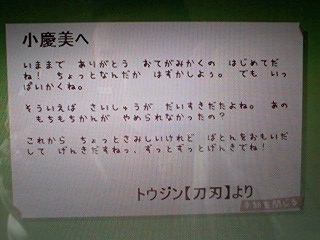 小慶美へ
いままで ありがとう おてがみかくの はじめてだ
ね! ちょっとなんだか はずかしよう。 でも いっ
ぱいかくね。
そういえば さいしゅうが だいすきだたよね。 あの
もちもちかんが やめられなかったの?
これから ちょっとさみしいけれど ばとんをおもいだ
して げんきだすねっ、ずっとずっとげんきでね!
トウジン【刀刃】より
手紙を閉じる